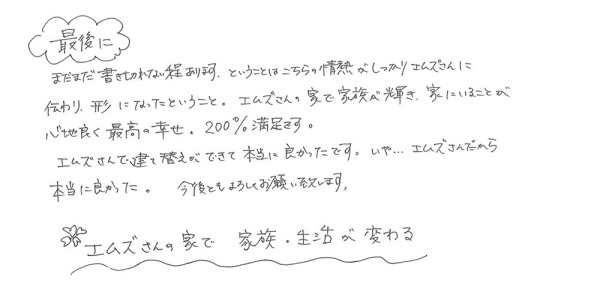 最後に
まだまだ書ききれない程あります。ということはこちらの情熱がしっかりエムズさんに
伝わり、形になったということ。エムズさんの家で家族が輝き、家にいることが
心地良く最高の幸せ。200%満足です。
エムズさんで建て替えができて本当に良かったです。いや…エムズさんだから
本当に良かった。今後ともよろしくお願い致します。
エムズさんの家で 家族・生活が変わる